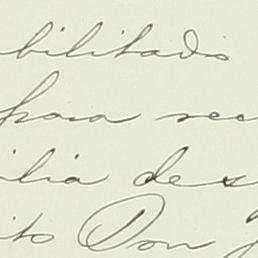 bilitado
para rec
ilia des
ito Don f